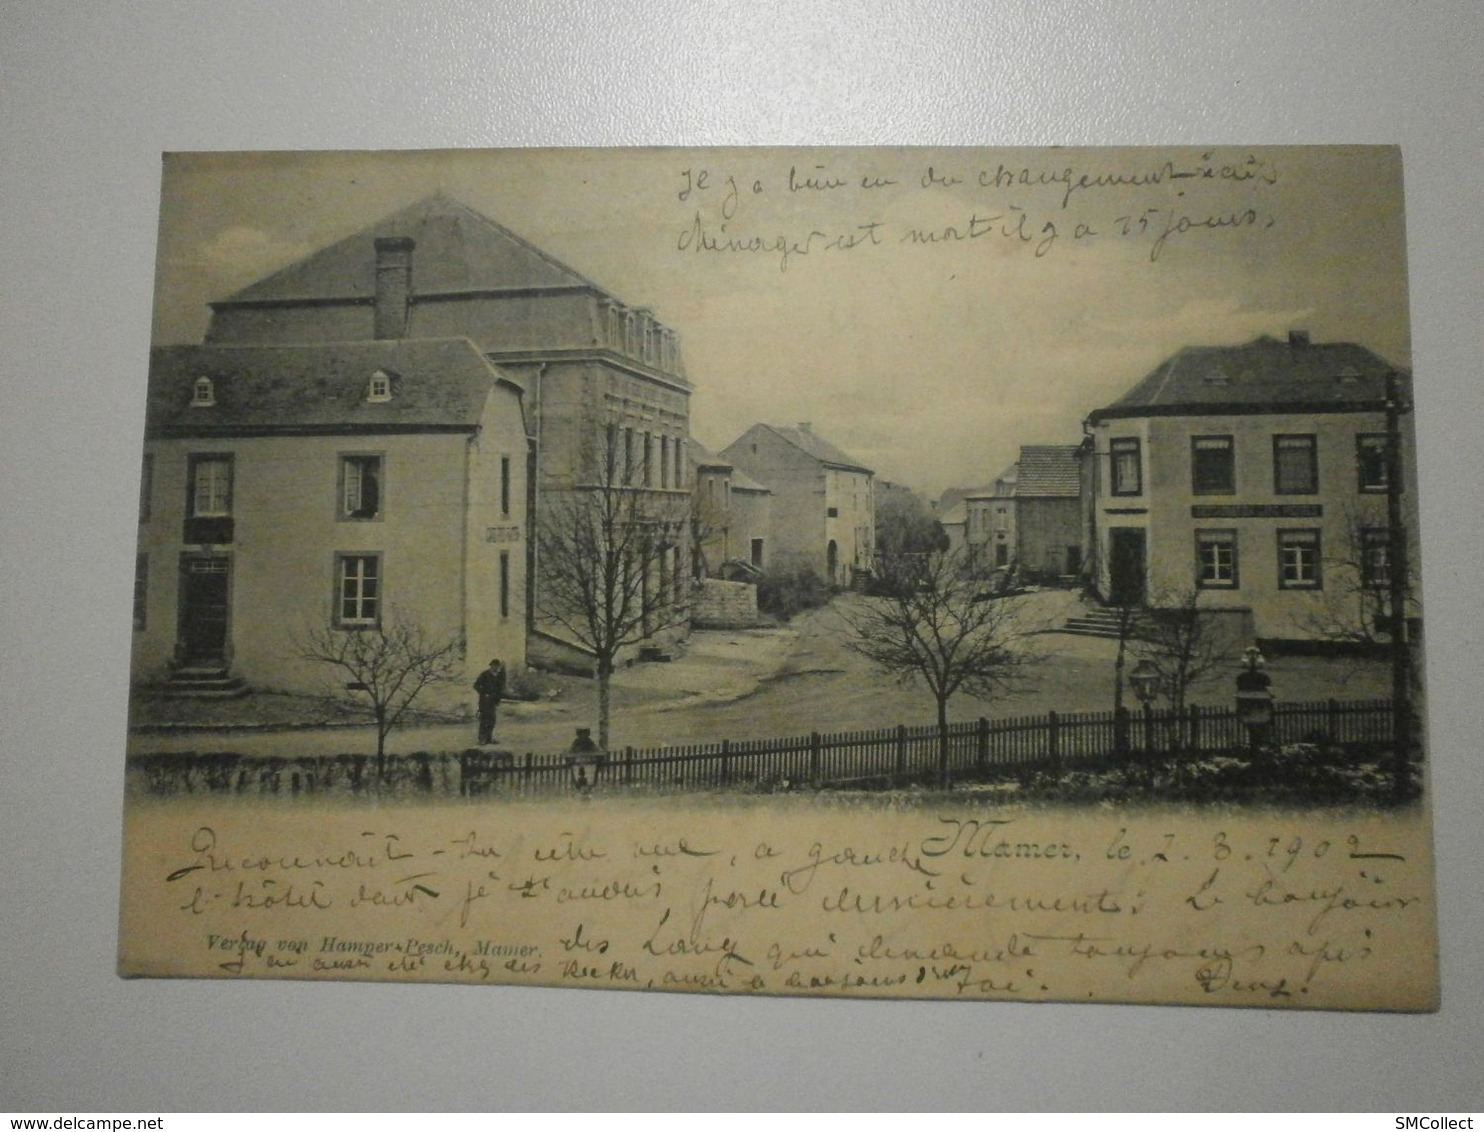 Il y a bien eu du changement ici,
Ménager est mort il y a 15 jours.
Mamer, le 7. 8. 1902
Reconnait-tu cette vue, a gauche
l'hôtel dont je t'audois parlé dernièrement. Le bonjour
Verlag von Hamper-Pesch, Mamer.
des Lang qui demande toujours après
j'ai aussi été chez des aussi
toi.
delcampe.net
SMCollect